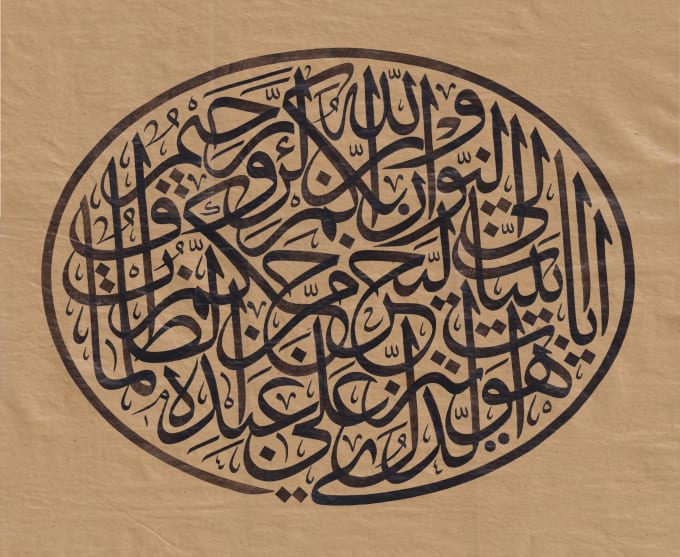 هو الذي ينزل على عبده
ايات بينات ليخرجكم من الظلمات
الى النور وان الله بكم لرؤف رحيم